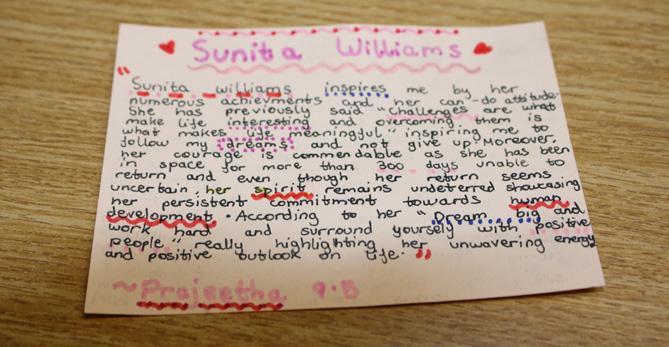 Sunita Williams
" Sunita williams inspires me by her
numerous achievments and her can-do attitude.
She has previously said "Challenges are what
make life interesting and overcoming them is
what makes life meaningful" inspiring me to
follow my dreams and not give up. Moreover,
her courage is commendable as she has been
in space for more than 300 days unable to
return and even though her return seems
uncertain her spirit remains undeterred showcasing
her persistent commitment towards human
development. According to her "Dream big and
work hard and surround yourself with positive
people" really highlighting her unwavering energy
and positive outlook on life. "
~Prajeetha 9.B